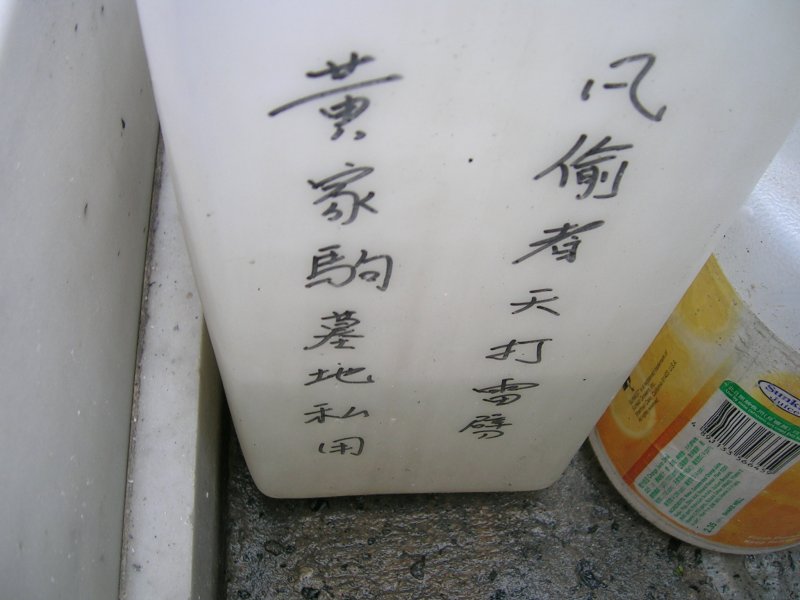 黃家駒墓地私用
凡偷者天打雷劈